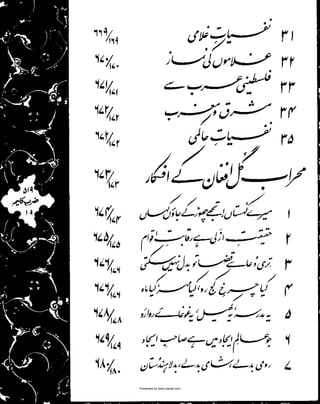 ۳۱ نفسیاتِ غلامی ۶۶۹/۱۶۹
۳۲ غلاموں کی نماز ۶۷۰/۱۷۰
۳۳ فلسطینی عرب سے ۶۷۱/۱۷۱
۳۴ مشرق و مغرب ۶۷۲/۱۷۲
۳۵ نفسیاتِ حاکمی ۶۷۲/۱۷۲
محراب گل افغان کے افکار ۶۷۳/۱۷۳
۱ میرے کہستاں! تجھے چھوڑ کے جاؤں کہاں ۶۷۴/۱۷۴
۲ حقیقتِ ازلی ہے رقابتِ اقوام ۶۷۵/۱۷۵
۳ تری دعا سے قضا تو بدل نہیں سکتی ۶۷۶/۱۷۶
۴ کیا چرخِ کج رو، کیا مہر، کیا ماہ ۶۷۶/۱۷۶
۵ یہ مدرسہ یہ کھیل یہ غوغائے روارو ۶۷۸/۱۷۸
۶ جو عالمِ ایجاد میں ہے صاحبِ ایجاد ۶۷۹/۱۷۹
۷ رومی بدلے، شامی بدلے، بدلا ہندستان ۶۸۰/۱۸۰
۵۱۹
ضربِ کلیم
۱۹